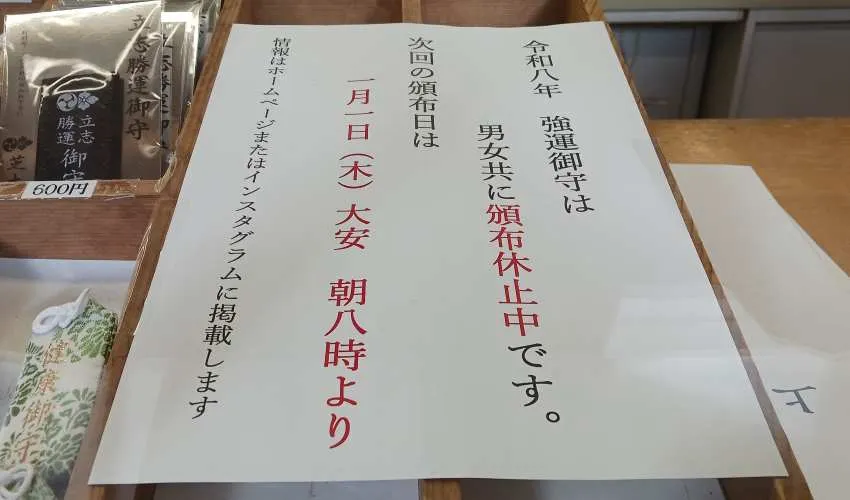 令和八年　強運御守は
男女共に頒布休止中です。
次回の頒布日は
一月一日（木）大安　朝八時より
情報はホームページまたはインスタグラムに掲載します
立志勝運御守
立志
勝運
御守
600円
健康御守